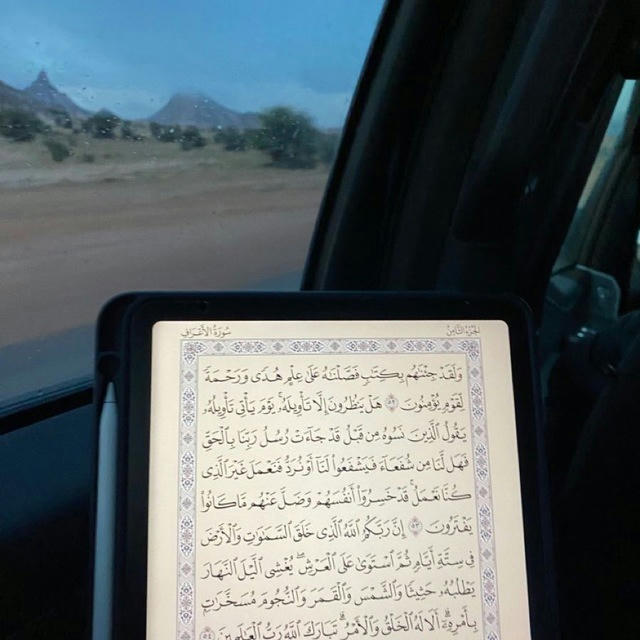 سُورَةُ الأَعْرَافِ
الجُزْءُ الثَّامِنُ
وَلَقَدْ جِئْنَٰهُم بِكِتَٰبٍ فَصَّلْنَٰهُ عَلَىٰ عِلْمٍ هُدًى وَرَحْمَةً
لِّقَوْمٍ يُؤْمِنُونَ ٥٢ هَلْ يَنظُرُونَ إِلَّا تَأْوِيلَهُۥ ۚ يَوْمَ يَأْتِى تَأْوِيلُهُۥ
يَقُولُ ٱلَّذِينَ نَسُوهُ مِن قَبْلُ قَدْ جَآءَتْ رُسُلُ رَبِّنَا بِٱلْحَقِّ
فَهَل لَّنَا مِن شُفَعَآءَ فَيَشْفَعُوا۟ لَنَآ أَوْ نُرَدُّ فَنَعْمَلَ غَيْرَ ٱلَّذِى
كُنَّا نَعْمَلُ ۚ قَدْ خَسِرُوٓا۟ أَنفُسَهُمْ وَضَلَّ عَنْهُم مَّا كَانُوا۟
يَفْتَرُونَ ٥٣ إِنَّ رَبَّكُمُ ٱللَّهُ ٱلَّذِى خَلَقَ ٱلسَّمَٰوَٰتِ وَٱلْأَرْضَ
فِى سِتَّةِ أَيَّامٍ ثُمَّ ٱسْتَوَىٰ عَلَى ٱلْعَرْشِ ۖ يُغْشِى ٱلَّيْلَ ٱلنَّهَارَ
يَطْلُبُهُۥ حَثِيثًا وَٱلشَّمْسَ وَٱلْقَمَرَ وَٱلنُّجُومَ مُسَخَّرَٰتٍۭ
بِأَمْرِهِۦٓ ۗ أَلَا لَهُ ٱلْخَلْقُ وَٱلْأَمْرُ ۗ تَبَارَكَ ٱللَّهُ رَبُّ ٱلْعَٰلَمِينَ ٥٤